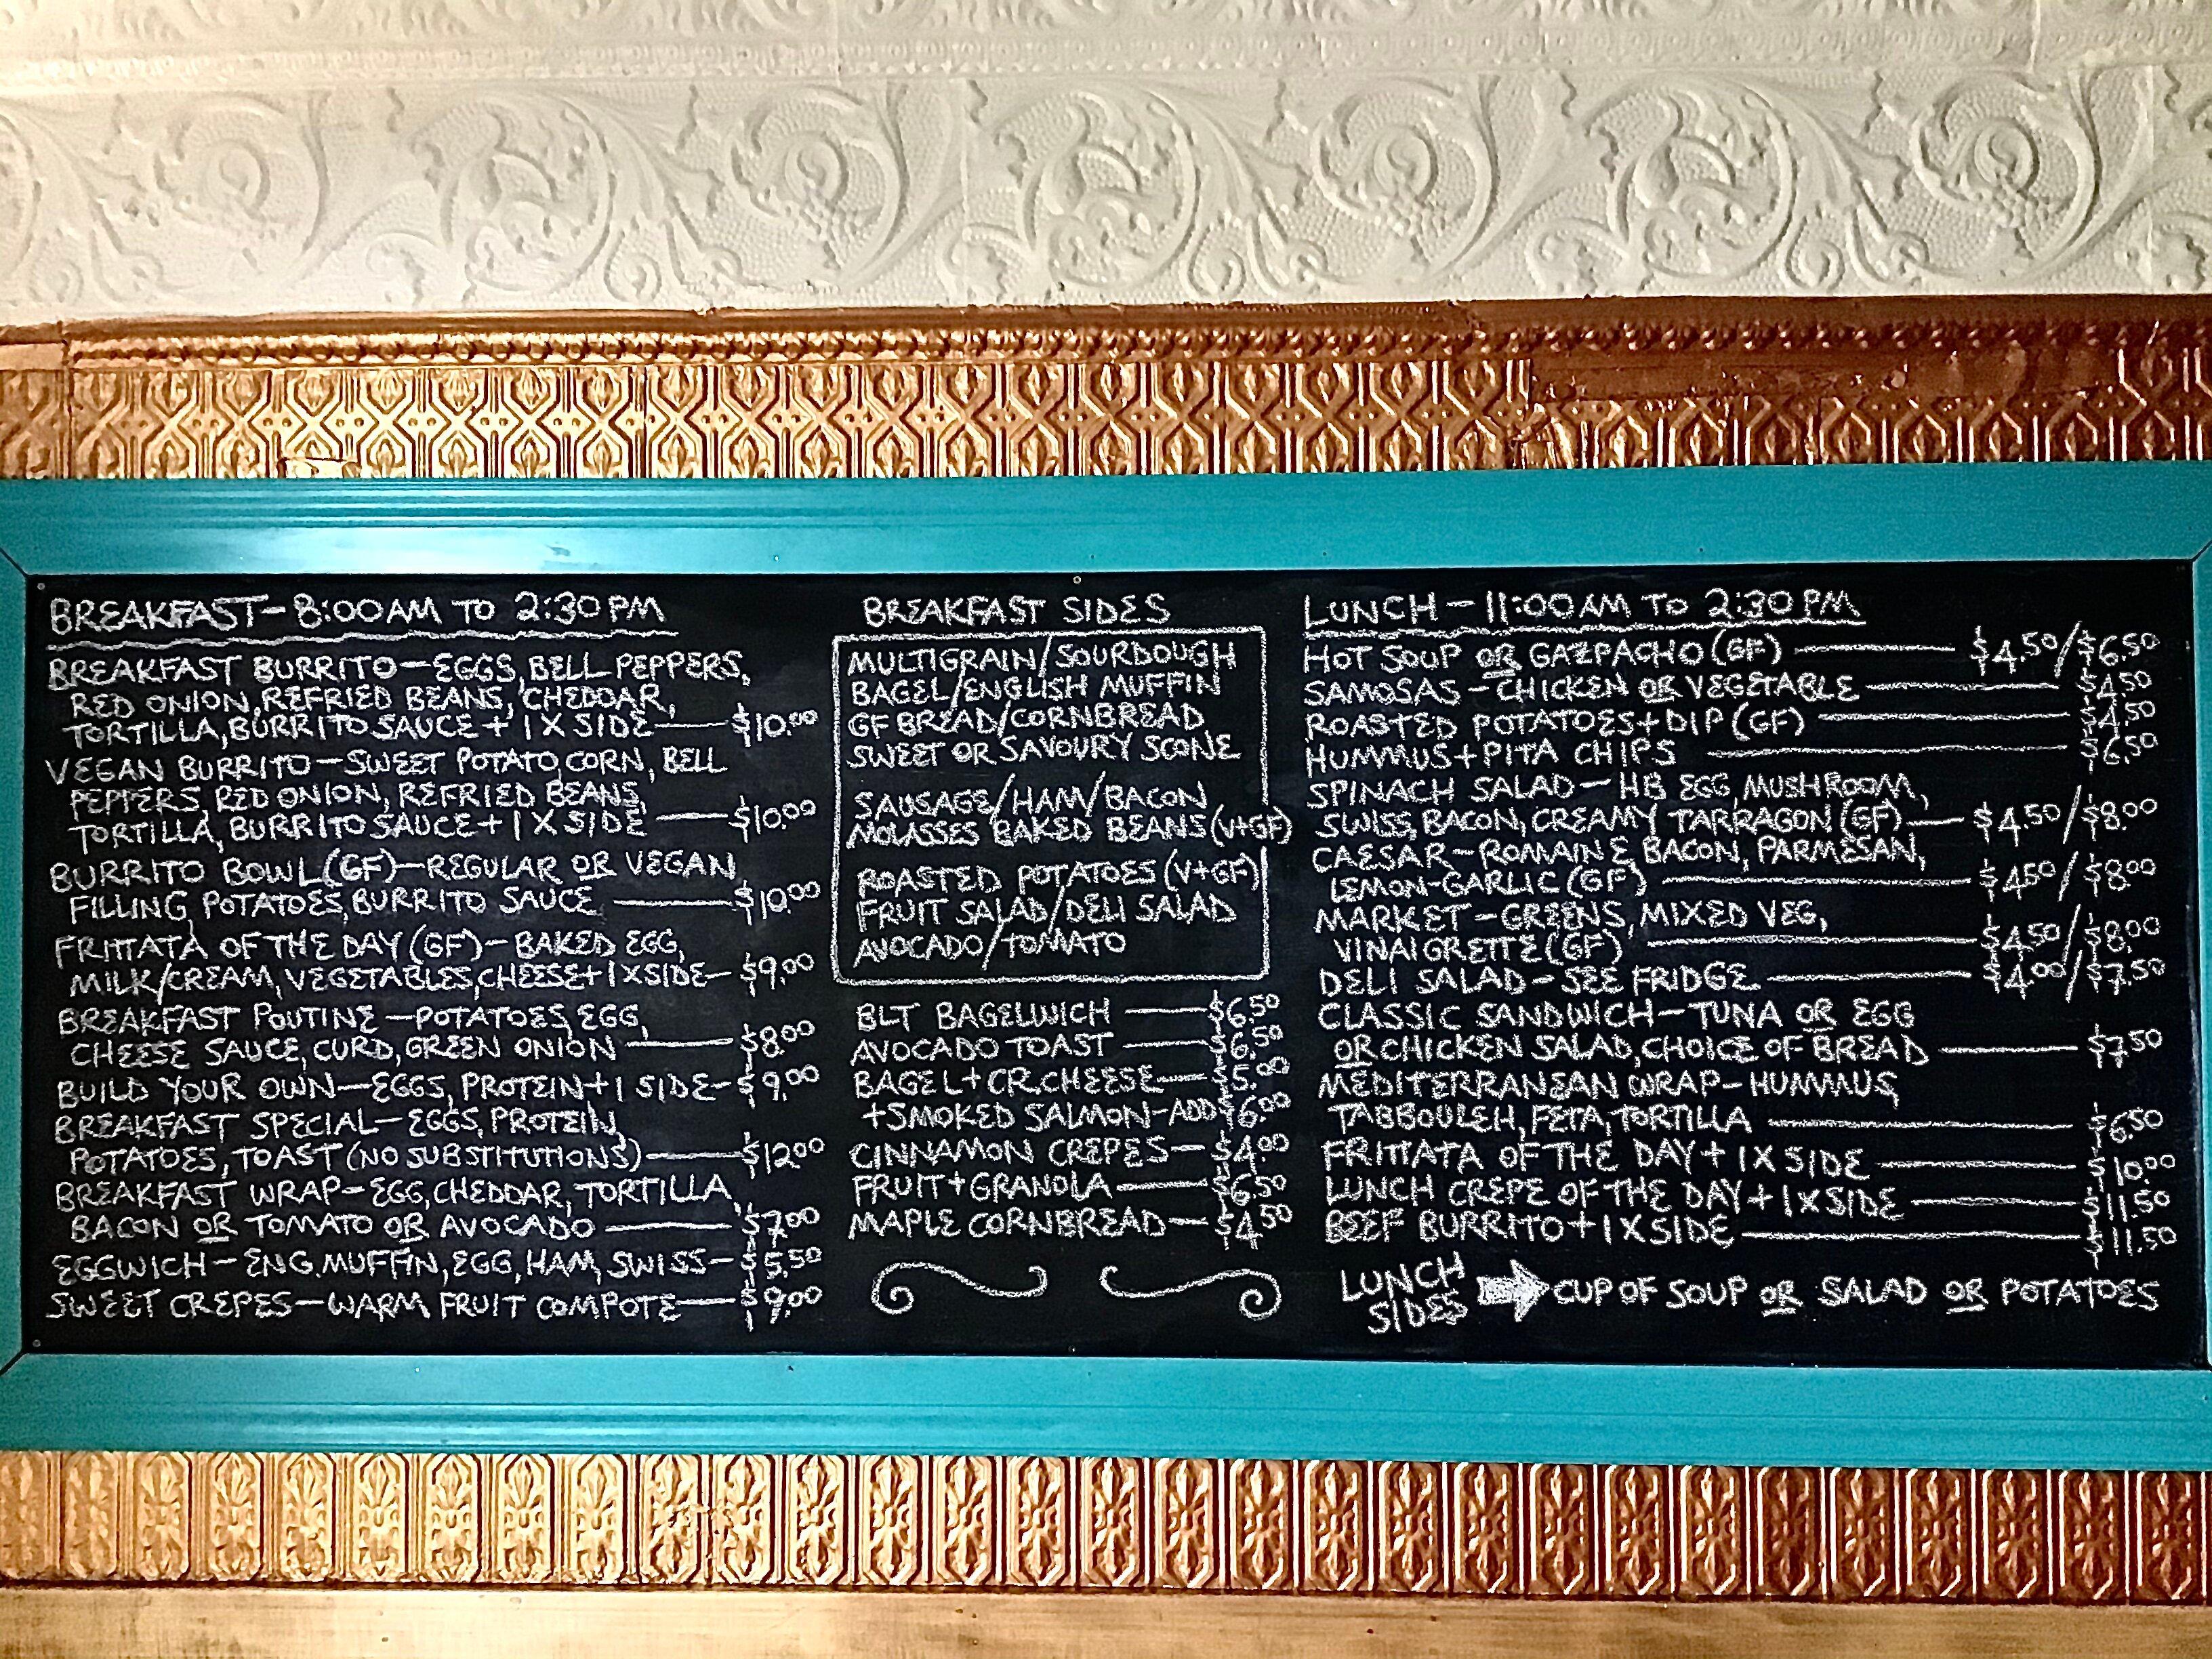 BREAKFAST-8:00AM TO 2:30PM
BREAKFAST BURRITO-EGGS, BELL PEPPERS,
RED ONION, REFRIED BEANS, CHEDDAR,
TORTILLA, BURRITO SAUCE + 1 X SIDE $10.00
VEGAN BURRITO-SWEET POTATO, CORN, BELL
PEPPERS, RED ONION, REFRIED BEANS,
TORTILLA, BURRITO SAUCE + 1 X SIDE $10.00
BURRITO BOWL (GF)-REGULAR OR VEGAN
FILLING, POTATOES, BURRITO SAUCE $10.00
FRITTATA OF THE DAY (GF)-BAKED EGG,
MILK/CREAM, VEGETABLES, CHEESE + 1 X SIDE- $9.00
BREAKFAST POUTINE-POTATOES, EGG,
CHEESE SAUCE, CURD, GREEN ONION $8.00
BUILD YOUR OWN-EGGS, PROTEIN + 1 SIDE- $9.00
BREAKFAST SPECIAL-EGGS, PROTEIN,
POTATOES, TOAST (NO SUBSTITUTIONS) $12.00
BREAKFAST WRAP-EGG, CHEDDAR, TORTILLA,
BACON OR TOMATO OR AVOCADO $7.00
EGGWICH-ENG. MUFFIN, EGG, HAM, SWISS- $5.50
SWEET CREPES-WARM FRUIT COMPOTE $9.00
BREAKFAST SIDES
MULTIGRAIN/SOURDOUGH
BAGEL/ENGLISH MUFFIN
GF BREAD/CORNBREAD
SWEET OR SAVOURY SCONE
SAUSAGE/HAM/BACON
MOLASSES BAKED BEANS (V+GF)
ROASTED POTATOES (V+GF)
FRUIT SALAD/DELI SALAD
AVOCADO/TOMATO
BLT BAGELWICH $6.50
AVOCADO TOAST $6.50
BAGEL + CR.CHEESE $5.00
+SMOKED SALMON-ADD $6.00
CINNAMON CREPES $4.00
FRUIT + GRANOLA $6.50
MAPLE CORNBREAD $4.50
LUNCH-11:00AM TO 2:30PM
HOT SOUP OR GAZPACHO (GF) $4.50/$6.50
SAMOSAS-CHICKEN OR VEGETABLE $4.50
ROASTED POTATOES + DIP (GF) $4.50
HUMMUS + PITA CHIPS $6.50
SPINACH SALAD-HB EGG, MUSHROOM,
SWISS, BACON, CREAMY TARRAGON (GF) $4.50/$8.00
CAESAR-ROMAINE, BACON, PARMESAN,
LEMON-GARLIC (GF) $4.50/$8.00
MARKET-GREENS, MIXED VEG,
VINAIGRETTE (GF) $4.50/$8.00
DELI SALAD-SEE FRIDGE $4.00/$7.50
CLASSIC SANDWICH-TUNA OR EGG
OR CHICKEN SALAD, CHOICE OF BREAD $7.50
MEDITERRANEAN WRAP-HUMMUS,
TABBOULEH, FETA, TORTILLA $6.50
FRITTATA OF THE DAY + 1 X SIDE $10.00
LUNCH CREPE OF THE DAY + 1 X SIDE $11.50
BEEF BURRITO + 1 X SIDE $11.50
LUNCH SIDES CUP OF SOUP OR SALAD OR POTATOES